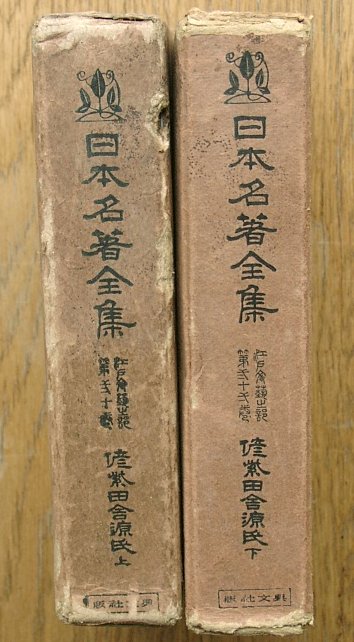 日本名著全集
江戸文藝之部
第弍十卷
偐紫田舎源氏上
興文社版
日本名著全集
江戸文藝之部
偐紫田舎源氏下
興文社版